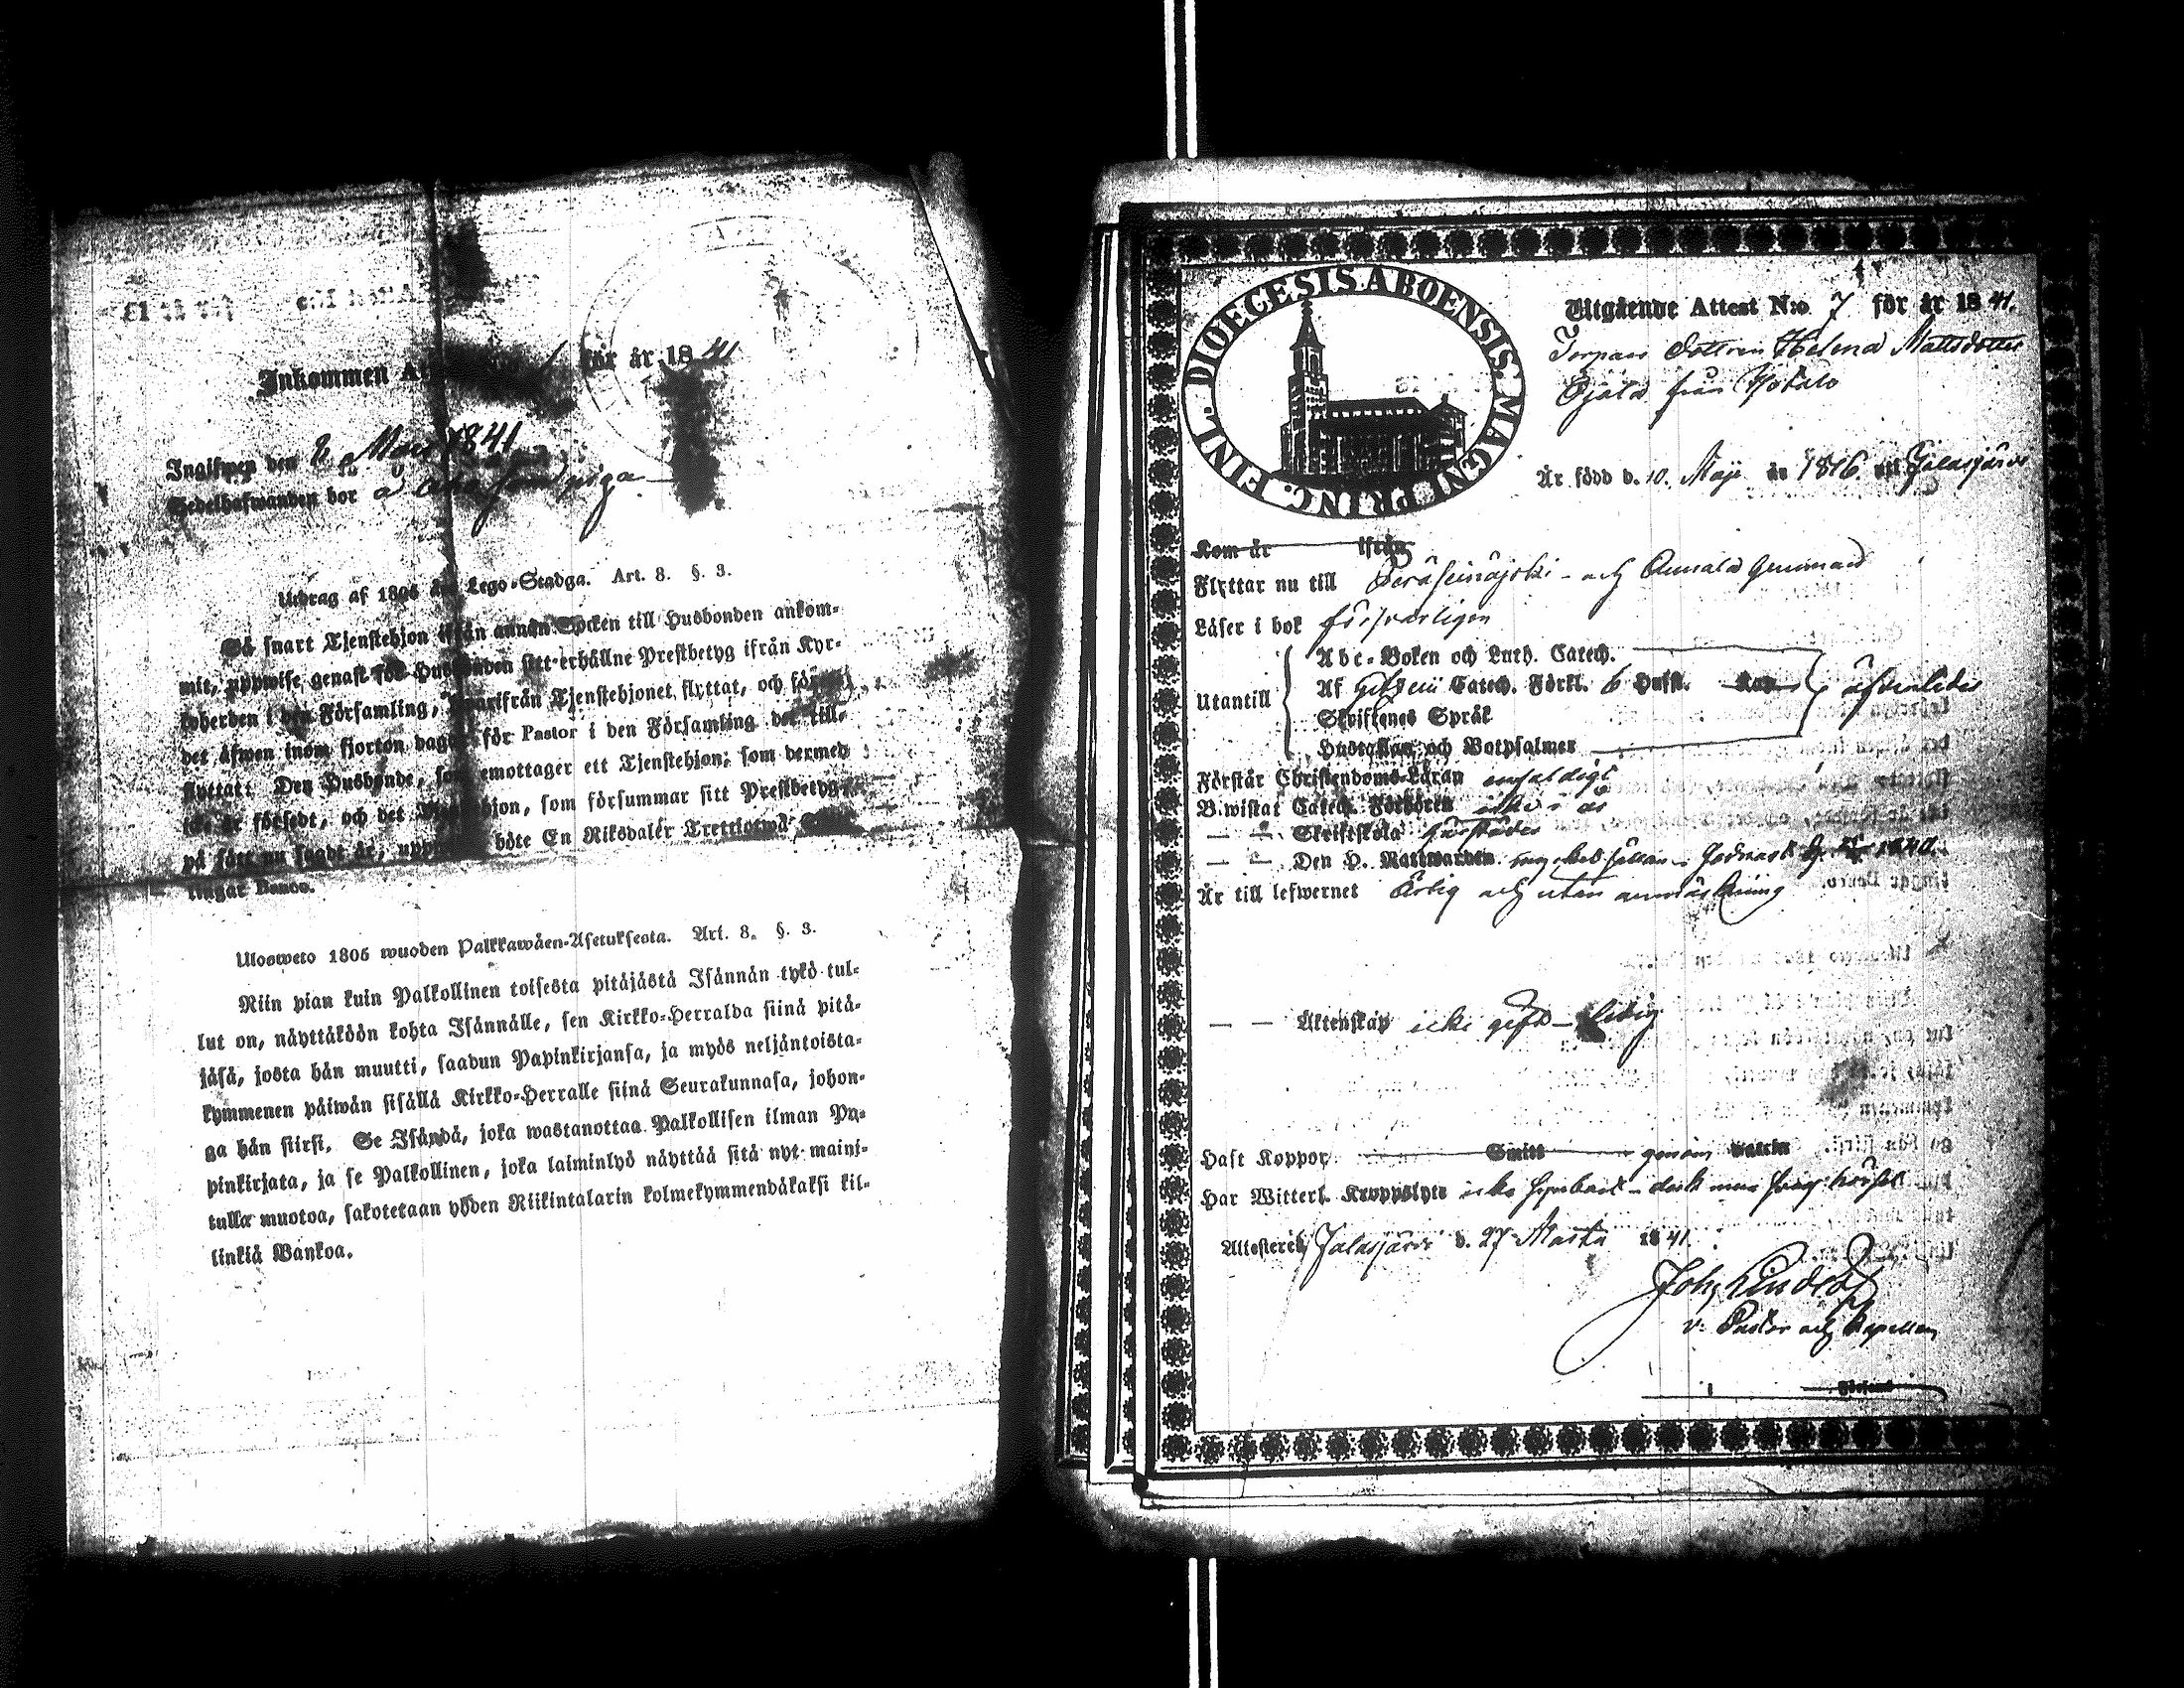 Inkommen för år 1841
Ingifwen den 2 Maii 1841
Sedelhafwanden bor å
Utdrag af 1805 års Lego-Stadga. Art. 8. §. 3.
Så snart Tjenstehjon ifrån annan Socken till Husbonden ankom-
mit, uppwise genast för Husbonden sitt erhållne Prestbetyg ifrån Kyr-
koherden i den Församling, hwarifrån Tjenstehjonet flyttat, och
det äfwen inom fjorton dagar för Pastor i den Församling det till-
flyttat. Den Husbonde, som emottager ett Tjenstehjon, som dermed
icke är försedt, och det Tjenstehjon, som försummar sitt Prestbetyg
på sätt nu sagdt är, uppwisa böte En Riksdaler Trettiotwå
lingar Banco.
Ulosweto 1805 wuoden Palkkawäen-Asetuksesta. Art. 8. §. 3.
Niin pian kuin Palkollinen toisesta pitäjästä Isännän tykö tul-
lut on, näyttäköön kohta Isännälle, sen Kirkko-Herralda siinä pitä-
jäsä, josta hän muutti, saadun Papinkirjansa, ja myös neljäntoista-
kymmenen päiwän sisällä Kirkko-Herralle siinä Seurakunnasa, johon-
ga hän siirsi. Se Isändä, joka wastanottaa Palkollisen ilman Pa-
pinkirjata, ja se Palkollinen, joka laiminlyö näyttää sitä nyt maini-
tulla muotoa, sakotetaan yhden Riikintalarin kolmekymmendäkaksi kil-
linkiä Bankoa.
FINL. DIOECESIS ABOENSIS MAGNI PRINC.
Utgående Attest N:o 7 för år 1841.
Torpare Dottren Helena Mattsdotter
Ojala från Jokalo
Är född d. 10. Maji år 1816. uti Jalasjärvi
Kom år ifrån
Flyttar nu till Peräseinäjoki och Annala
Läser i bok försvarligen
Abc-Boken och Luth. Catech.
Utantill
Af Catech. Förkl. 6 Hufst. Kap
Skriftenes Språk
Hustaflan och Botpsalmer
Förstår Christendoms-Läran enfaldigt
Biwistat Catech. Förhören
— — Skriftskola
— — Den H. Nattwarden 1840.
Är till lefwernet Ärlig och utan anmärkning
— — Äktenskap icke gift — ledig
Haft Koppor Smitt genom waccin
Har Witterl. Kroppslyte icke
Attesterar Jalasjärvi d. 27 Martii 1841.
Joh. Lindelöf
v. Pastor och Capellan
i Församl.